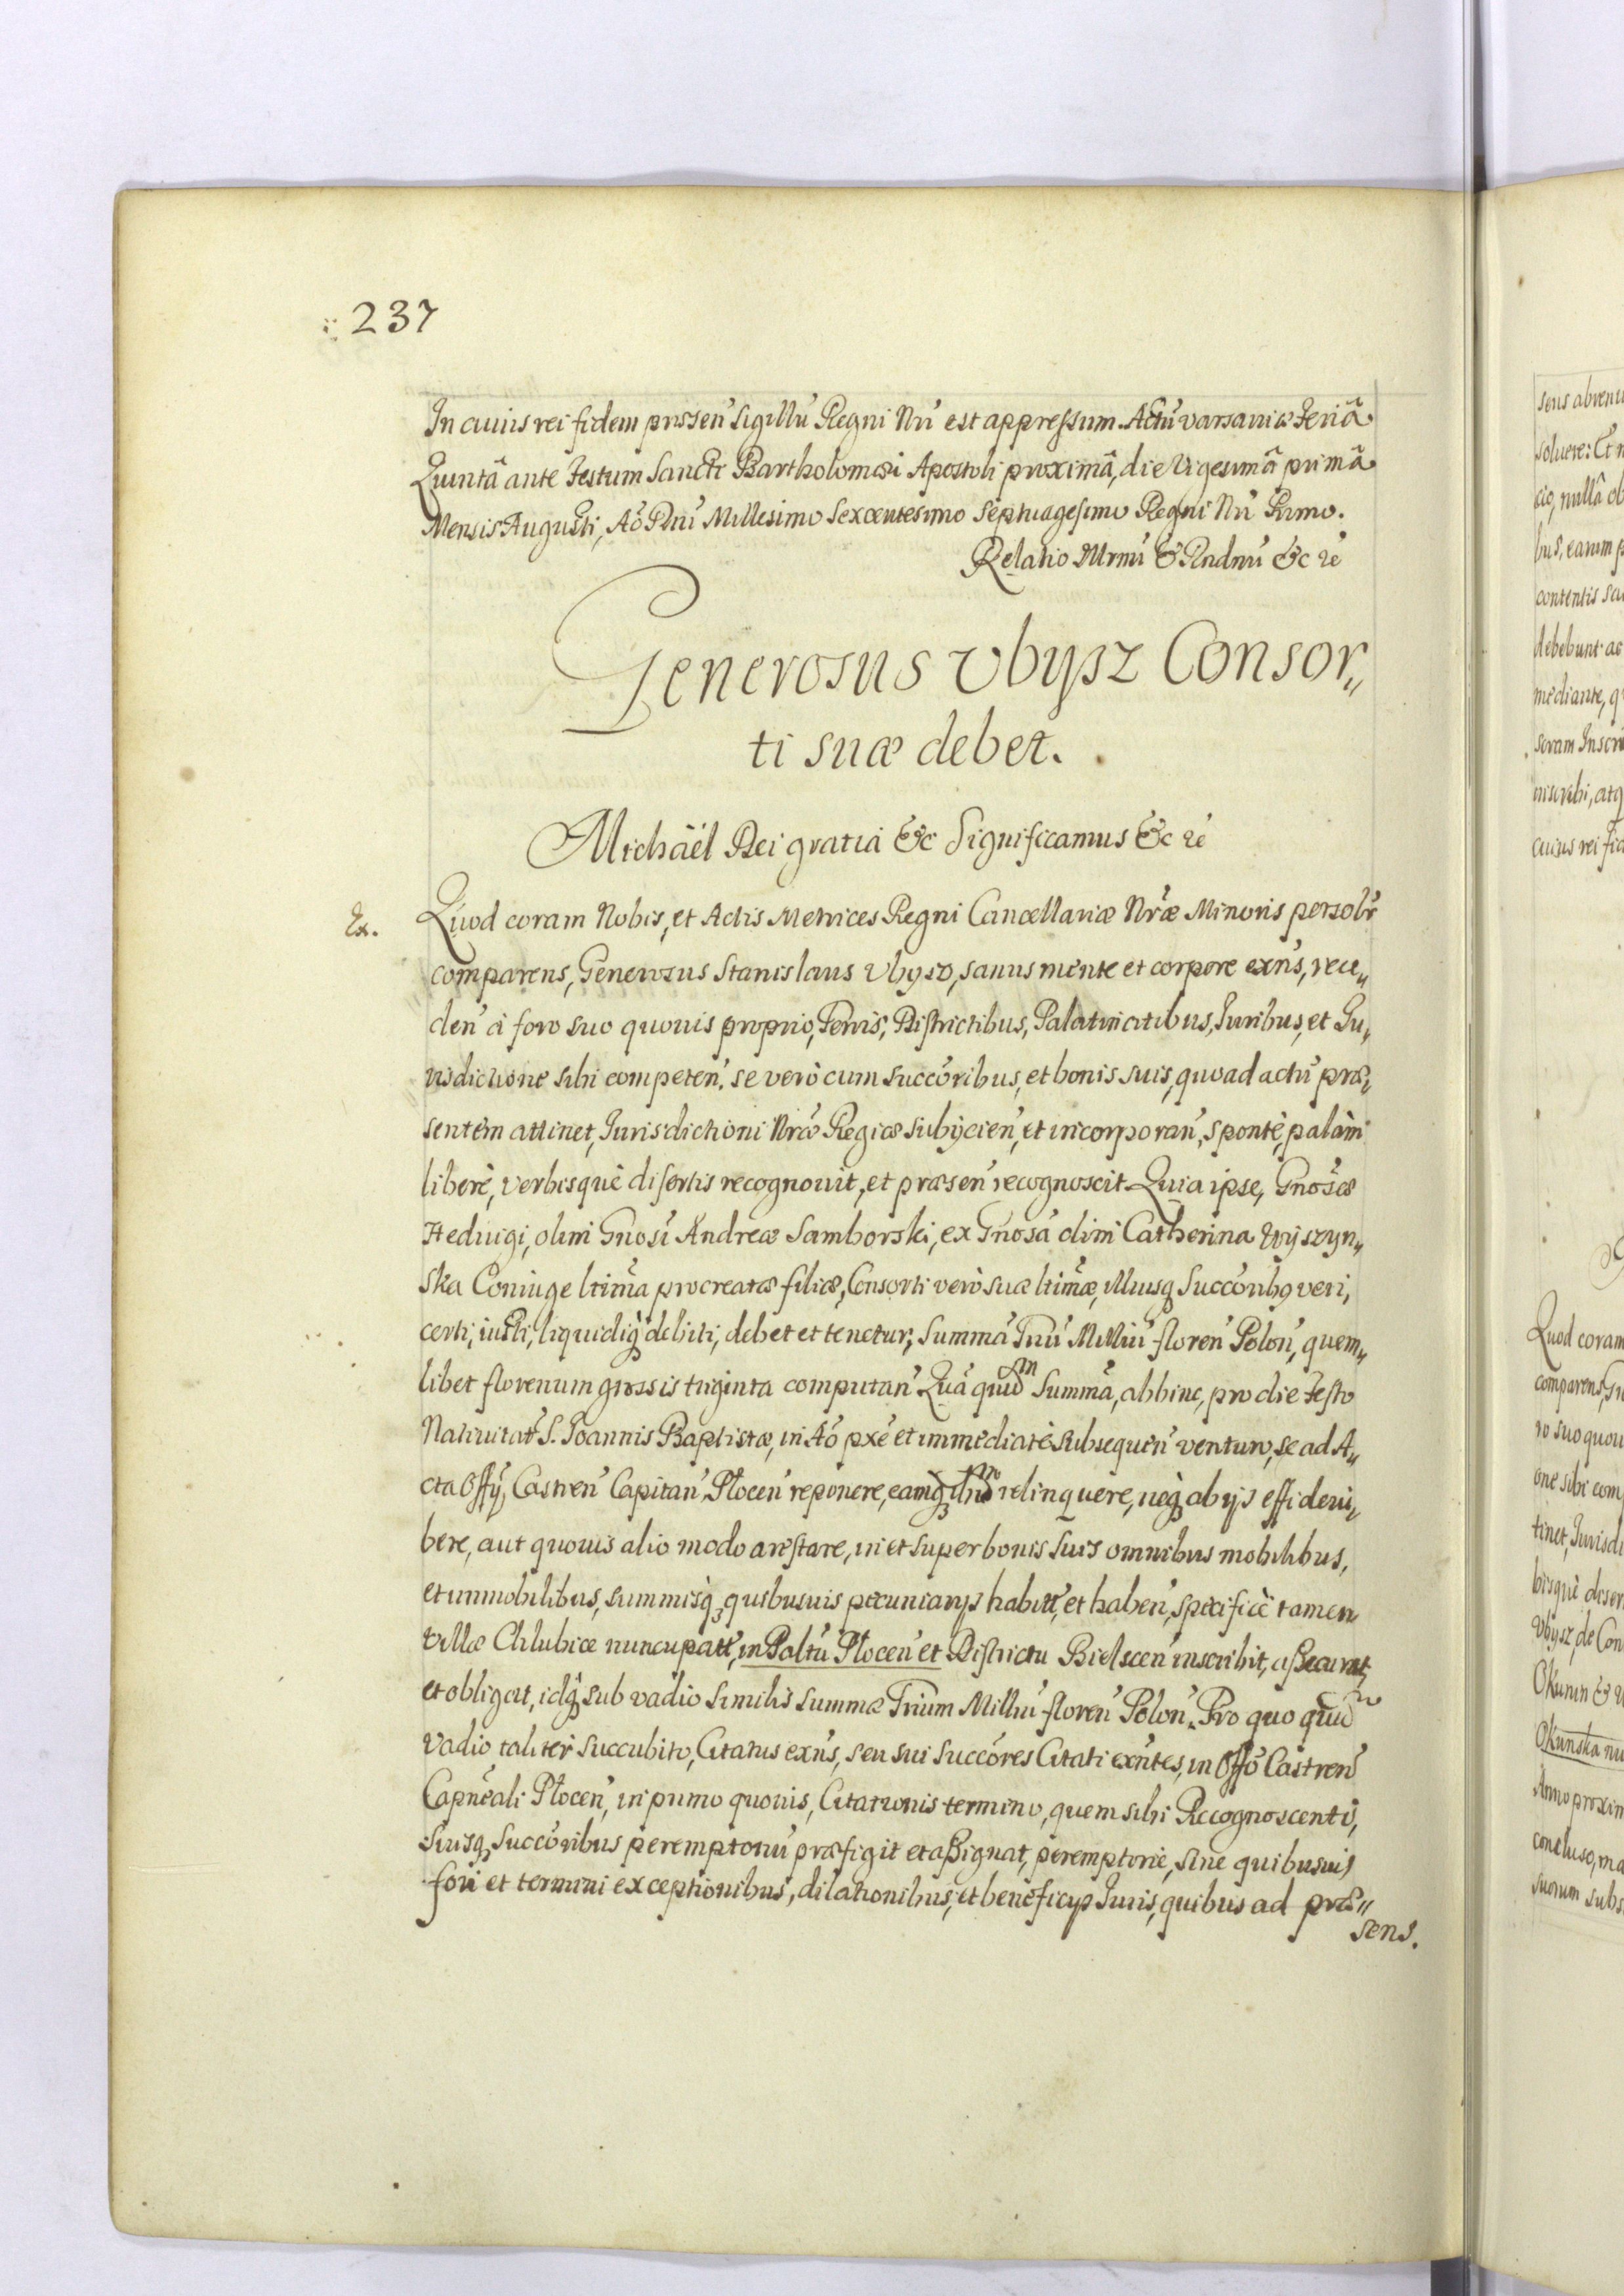 237
In cuius rei fidem prssen̄ Sigillū Regni Nrī est appressum. Actū varsaviæ Feriâ
Quintâ ante Festum Sancti Bartholomæi Apostoli proximâ, die Vigesimâ primâ
Mensis Augusti, Aō Dnī Millesimo Sexcentesimo Septuagesimo Regni Nrī Primo.
Relatio Illrmi & Rndmi &c ꝛc
Generosus Vbysz Consor„
ti suæ debet.
Michäel Dei gratiâ &c Significamus &c ꝛc
Ex.
Quod coram Nobis, et Actis Metrices Regni Cancellariæ Nræ Minoris persolr
comparens, Generosus Stanislaus Vbysz, sanus mente et corpore exns, rece„
den̄ à foro suo quovis proprio, Terris, Districtibus, Palatinatibus, Juribus, et Ju„
risdictione sibi competen̄. se verò cum succōribus, et bonis suis, quoad actū præ„
sentem attinet, Jurisdictioni Nræ Regiæ subijcien̄, et incorporan̄, sponte, palàm
liberè, verbisquè disertis recognovit, et præsen̄ recognoscit. Quia ipse, Gnosæ
Heduigi, olim Gnosi Andreæ Samborski, ex Gnosa olim Catherina Wyszyn„
ska Coniuge ltima procreatæ filiæ, Consorti verò suæ ltimæ, illiusq Succōribq veri,
certi, iusti, liquidiq debiti, debet et tenetur, summā Triū Milliū floren̄ Polon̄, quem„
libet florenum grossis triginta computan̄ Quā quid̄m Summā, abhinc, pro die Festo
Nativitat̄ S. Joannis Baptistæ, in Aō pxē et immediatè subsequen̄ venturo, se ad A„
cta Offij, Castren̄ Capitan̄, Płocen̄ reponere, eamq ibid̄m relinquere, neq ab ijs effideiu„
bere, aut quovis alio modo arestare, in et super bonis suis omnibus mobilibus,
et immobilibus, summisq, quibusuis pecuniarijs habitt̄, et haben̄, specificè tamen
villæ Chlubice nuncupatt̄, in Paltū Płocen̄ et Districtu Bielscen̄ inscribit, assecurat,
et obligat, idq sub vadio similis summæ Trium Milliū floren̄ Polon̄. Pro quo quid̄
Vadio taliter succubito, Citatus exns, seu sui succōres Citati exntes, in Offō Castren̄
Capnēali Płocen̄, in primo quovis, Citationis termino, quem sibi Recognoscenti,
Suisq, Succōribus peremptoriū præfigit et assignat, peremptorie, sine quibusuis
fori et termini exceptionibus, dilationibus, et beneficijs Juris, quibus ad præ„
sens.